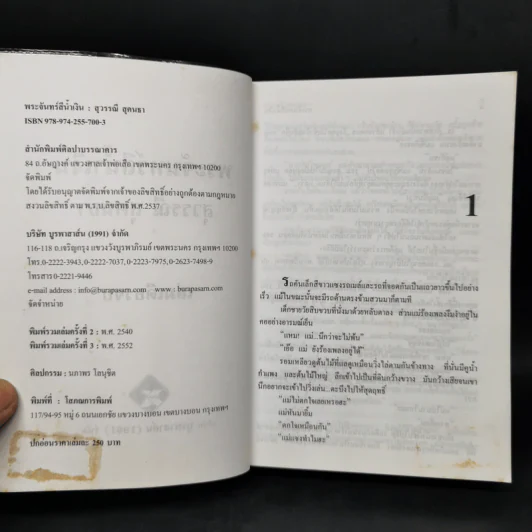 พระจันทร์สีน้ำเงิน : สุวรรณี สุคนธา
ISBN 978-974-255-700-3
สำนักพิมพ์ศิลปาบรรณาคาร
84 ถ.อัษฎางค์ แขวงศาลเจ้าพ่อเสือ เขตพระนคร กรุงเทพฯ 10200
จัดพิมพ์
โดยได้รับอนุญาตจัดพิมพ์จากเจ้าของลิขสิทธิ์อย่างถูกต้องตามกฎหมาย
สงวนลิขสิทธิ์ ตาม พ.ร.บ.ลิขสิทธิ์ พ.ศ.2537
บริษัท บูรพาสาส์น (1991) จำกัด
116-118 ถ.เจริญกรุง แขวงวังบูรพาภิรมย์ เขตพระนคร กรุงเทพฯ 10200
โทร.0-2222-3943, 0-2222-7037, 0-2223-7975, 0-2623-7498-9
โทรสาร 0-2221-9446
e-mail address : info@burapasarn.com , www : burapasarn.com
จัดจำหน่าย
พิมพ์รวมเล่มครั้งที่ 2 : พ.ศ. 2540
พิมพ์รวมเล่มครั้งที่ 3 : พ.ศ. 2552
ศิลปกรรม : นภาพร โสนุชิต
พิมพ์ที่ : โสภณการพิมพ์
117/94-95 หมู่ 6 ถนนเอกชัย แขวงบางบอน เขตบางบอน กรุงเทพฯ
ปกอ่อนราคาเล่มละ 250 บาท
1
รถคันเล็กสีขาวแซงรถเมล์และรถที่จอดกันเป็นแถวยาวขึ้นไปอย่าง
เร็ว แม้ในขณะนั้นจะมีรถด้านตรงข้ามสวนมาก็ตามที
เด็กชายวัยสิบขวบที่นั่งมาด้วยหลับตาลง ส่วนแม่ร้องเพลงงึมงำอยู่ใน
คออย่างอารมณ์เย็น
"แหม! แม่...นึกว่าจะไม่พ้น"
"เอ๊ย แม่ ยังร้องเพลงอยู่ได้"
รองเหลียวดูต้นไม้ที่แลดูเหมือนวิ่งไล่ตามกันข้างทาง ที่นั่นมีคูน้ำ
กำแพง และต้นไม้ใหญ่ ลึกเข้าไปเป็นที่ดินกว้างขวาง มันกว้างเสียจนเขา
นึกอยากจะเข้าไปวิ่งเล่น...ตะบึงไปให้สุดฤทธิ์
"แม่ไม่ตกใจเลยหรอฮะ"
แม่หันมายิ้ม
"ตกใจเหมือนกัน"
"แม่แซงทำไมฮะ"